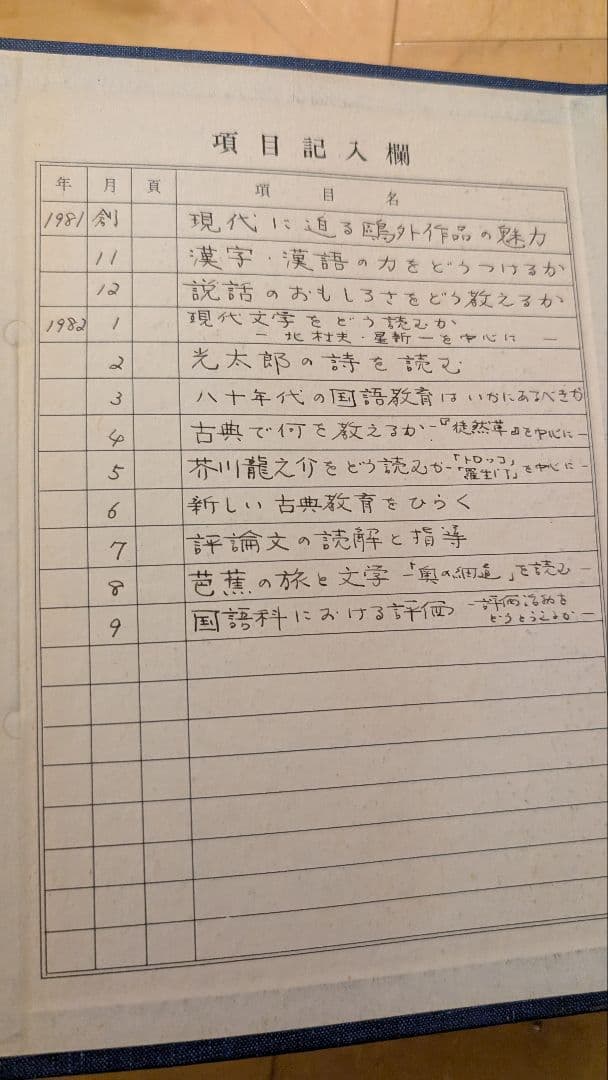 項目記入欄
年 月 頁 項目名
1981 創 現代に迫る鴎外作品の魅力
11 漢字・漢語の力をどうつけるか
12 説話のおもしろさをどう教えるか
1982 1 現代文学をどう読むか
－北杜夫・星新一を中心に－
2 光太郎の詩を読む
3 八十年代の国語教育はいかにあるべきか
4 古典で何を教えるか－『徒然草』を中心に－
5 芥川龍之介をどう読むか－「トロッコ」「羅生門」を中心に－
6 新しい古典教育をひらく
7 評論文の読解と指導
8 芭蕉の旅と文学－「奥の細道」を読む－
9 国語科における評価－評価活動をどうとらえるか－